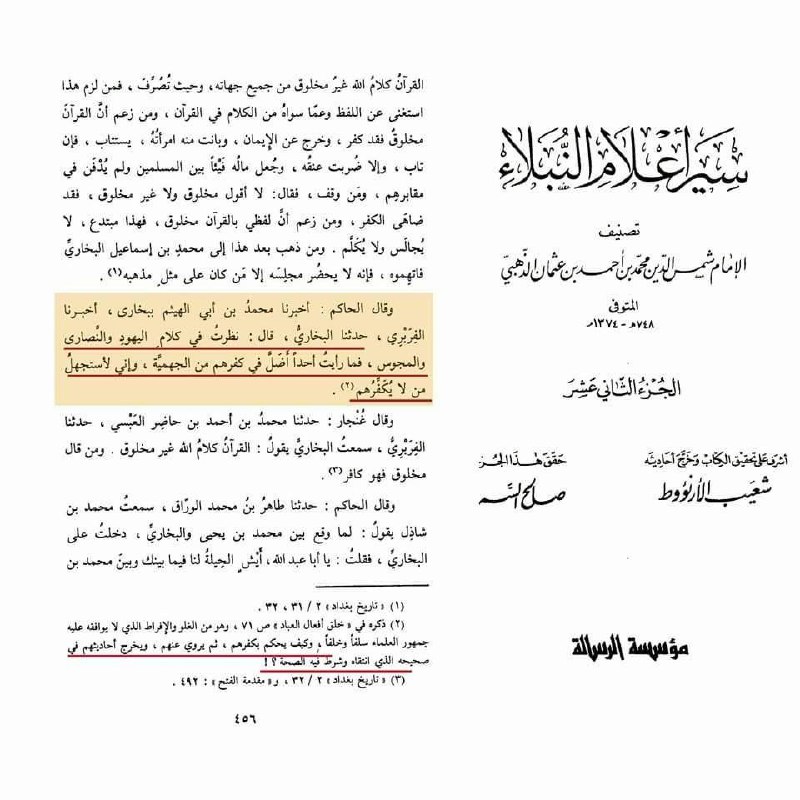 سير أعلام النبلاء
تصنيف
الإمام شمس الدين محمد بن أحمد بن عثمان الذهبي
المتوفى
٧٤٨هـ - ١٣٧٤م
الجزء الثاني عشر
أشرف على تحقيق الكتاب وخرج أحاديثه
شعيب الأرنؤوط
حقق هذا الجزء
صالح السمر
مؤسسة الرسالة
القرآنُ كلامُ الله غيرُ مخلوق من جميع جهاته، وحيث تُصُرِّفَ ، فمن لزم هذا
استغنى عن اللفظ وعمّا سواهُ من الكلام في القرآن ، ومن زعم أنَّ القرآنَ
مخلوقٌ فقد كفر ، وخرج عن الإِيمان ، وبانت منه امرأتُهُ ، يستتاب ، فإن
تاب ، وإلا ضُربت عنقه ، وجُعل مالُه فَيْئاً بين المسلمين ولم يُدْفَن في
مقابرهم ، ومَن وقف ، فقال: لا أقول مخلوق ولا غير مخلوق ، فقد
ضاهى الكفر ، ومن زعم أنَّ لفظي بالقرآن مخلوق ، فهذا مبتدع ، لا
يُجالَس ولا يُكَلَّم . ومن ذهب بعد هذا إلى محمد بن إسماعيل البخاريِّ
فاتهِموه ، فإنه لا يحضُر مجلِسَه إلا مَن كان على مثلِ مذهبه(١) .
وقال الحاكم : أخبرنا محمدُ بن أبي الهيثم ببخارى ، أخبرنا
الفِرَبْرِي ، حدثنا البخاريُّ ، قال : نظرتُ في كلامِ اليهودِ والنَّصارى
والمجوس ، فما رأيتُ أحداً أَضَلَّ في كفرهم من الجهميَّة ، وإني لأستجهلُ
من لا يُكَفِّرُهم(٢) .
وقال غُنْجار : حدثنا محمدُ بن أحمد بن حاضِر العَبْسي ، حدثنا
الفِرَبْرِيُّ ، سمعتُ البخاريَّ يقولُ : القرآنُ كلامُ الله غير مخلوق . ومن قال
مخلوق فهو كافر(٣) .
وقال الحاكم : حدثنا طاهرُ بنُ محمد الورَّاق ، سمعتُ محمد بن
شاذِل يقولُ : لما وقع بين محمد بن يحيى والبخاريِّ ، دخلتُ على
البخاريِّ ، فقلتُ : يا أبا عبد الله، أَيْش الحِيلةُ لنا فيما بينك وبينَ محمد بن
(١) « تاريخ بغداد » ٢ / ٣١ ، ٣٢ .
(٢) ذكره في « خلق أفعال العباد » ص ٧١ ، وهو من الغلو والإفراط الذي لا يوافقه عليه
جمهور العلماء سلفاً وخلفاً ، وكيف يحكم بكفرهم ، ثم يروي عنهم ، ويخرج أحاديثهم في
صحيحه الذي انتقاه وشرط فيه الصحة ؟ !
(٣) « تاريخ بغداد » ٢ / ٣٢ ، و « مقدمة الفتح » : ٤٩٢ .
٤٥٦